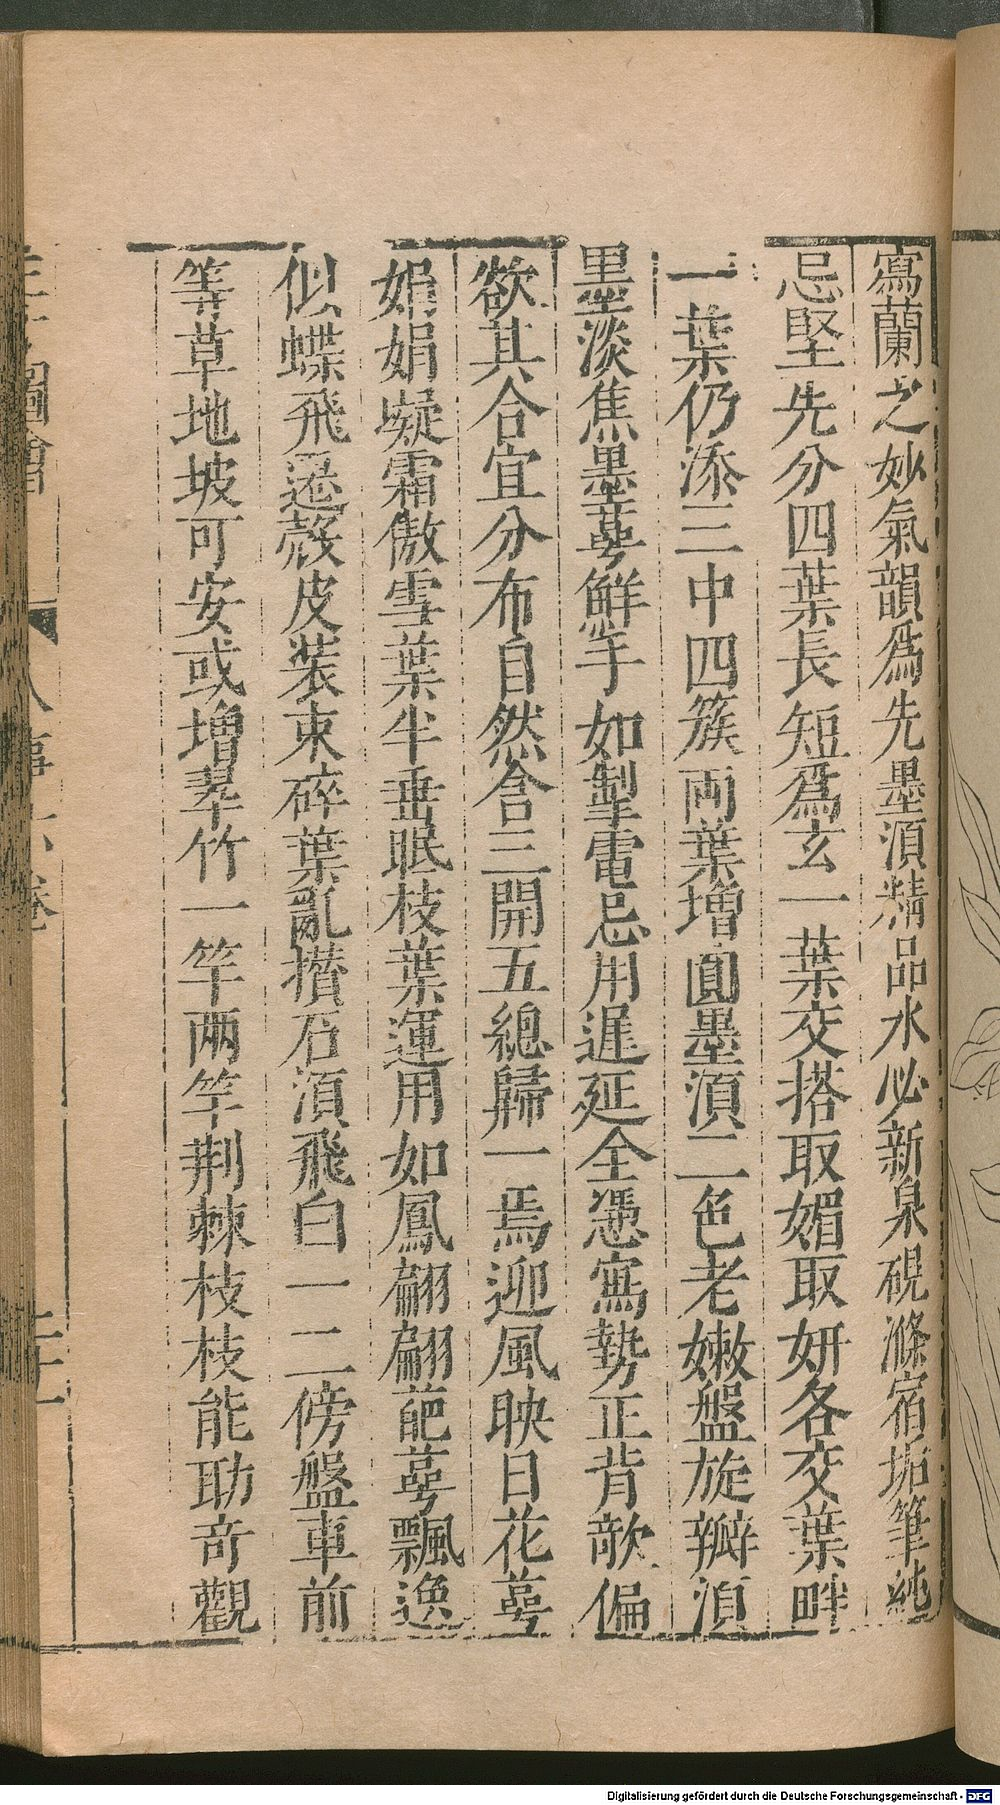 寫蘭之妙氣韻爲先墨湏精品水必新泉硯滌宿垢筆純
忌堅先分四葉長短爲玄一葉交搭取媚取妍各交葉畔
一葉仍添三中四簇両葉增圓墨湏二色老嫩盤旋瓣湏
墨淡焦墨蕚鮮手如掣電忌用遅延全憑寫勢正背欹偏
欲其合宜分布自然含三開五總歸一焉迎風映日花蕚
娟娟凝霜傲雪葉半垂眠枝葉運用如鳳翩翩葩蕚飄逸
似蝶飛遷殼皮装束碎葉亂攅石湏飛白一二傍盤車前
等草地坡可安或增翠竹一竿兩竿荆棘枝枝能助奇觀
圖會 人事 卷
Digitalisierung gefördert durch die Deutsche Forschungsgemeinschaft - DFG